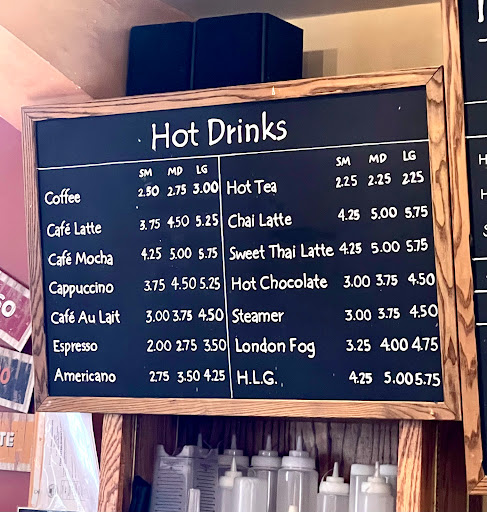 Hot Drinks
SM MD LG
Coffee 2.50 2.75 3.00
Café Latte 3.75 4.50 5.25
Café Mocha 4.25 5.00 5.75
Cappuccino 3.75 4.50 5.25
Café Au Lait 3.00 3.75 4.50
Espresso 2.00 2.75 3.50
Americano 2.75 3.50 4.25
SM MD LG
Hot Tea 2.25 2.25 2.25
Chai Latte 4.25 5.00 5.75
Sweet Thai Latte 4.25 5.00 5.75
Hot Chocolate 3.00 3.75 4.50
Steamer 3.00 3.75 4.50
London Fog 3.25 4.00 4.75
H.L.G. 4.25 5.00 5.75